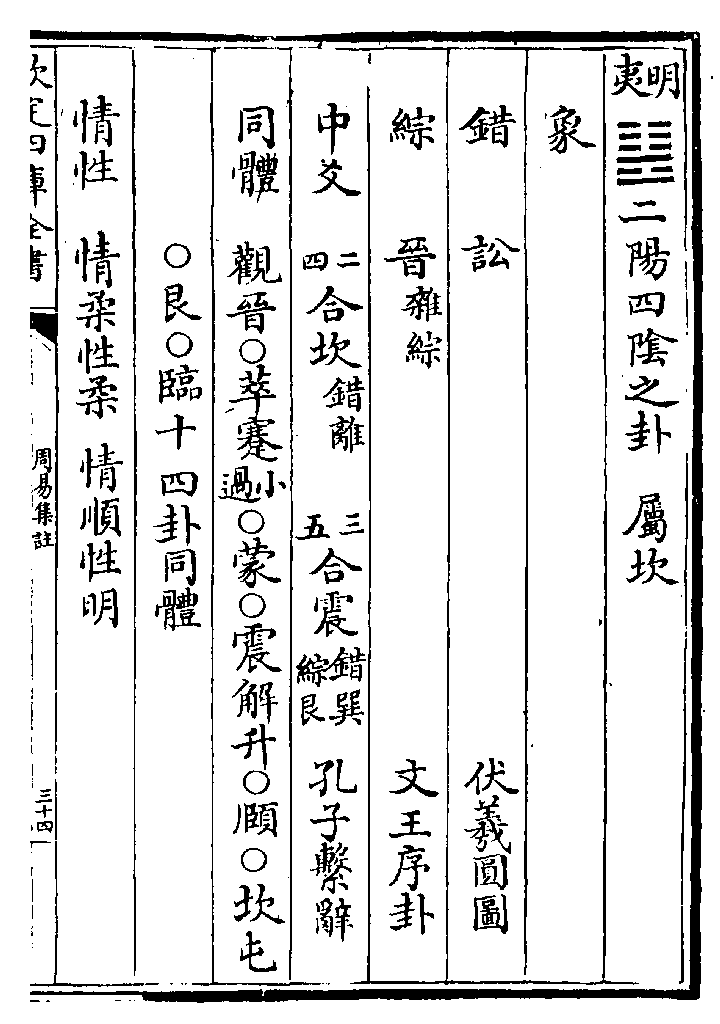 明夷䷣二陽四陰之卦　屬坎
象
錯　訟　伏羲圓圖
綜　晉雜綜　文王序卦
中爻　二四合坎錯離　三五合震錯巽綜艮　孔子繫辭
同體　觀晉○萃蹇小過○蒙○震解升○頤○坎屯
○艮○臨十四卦同體
情性　情柔性柔　情順性明
欽定四庫全書
周易集註
三十四